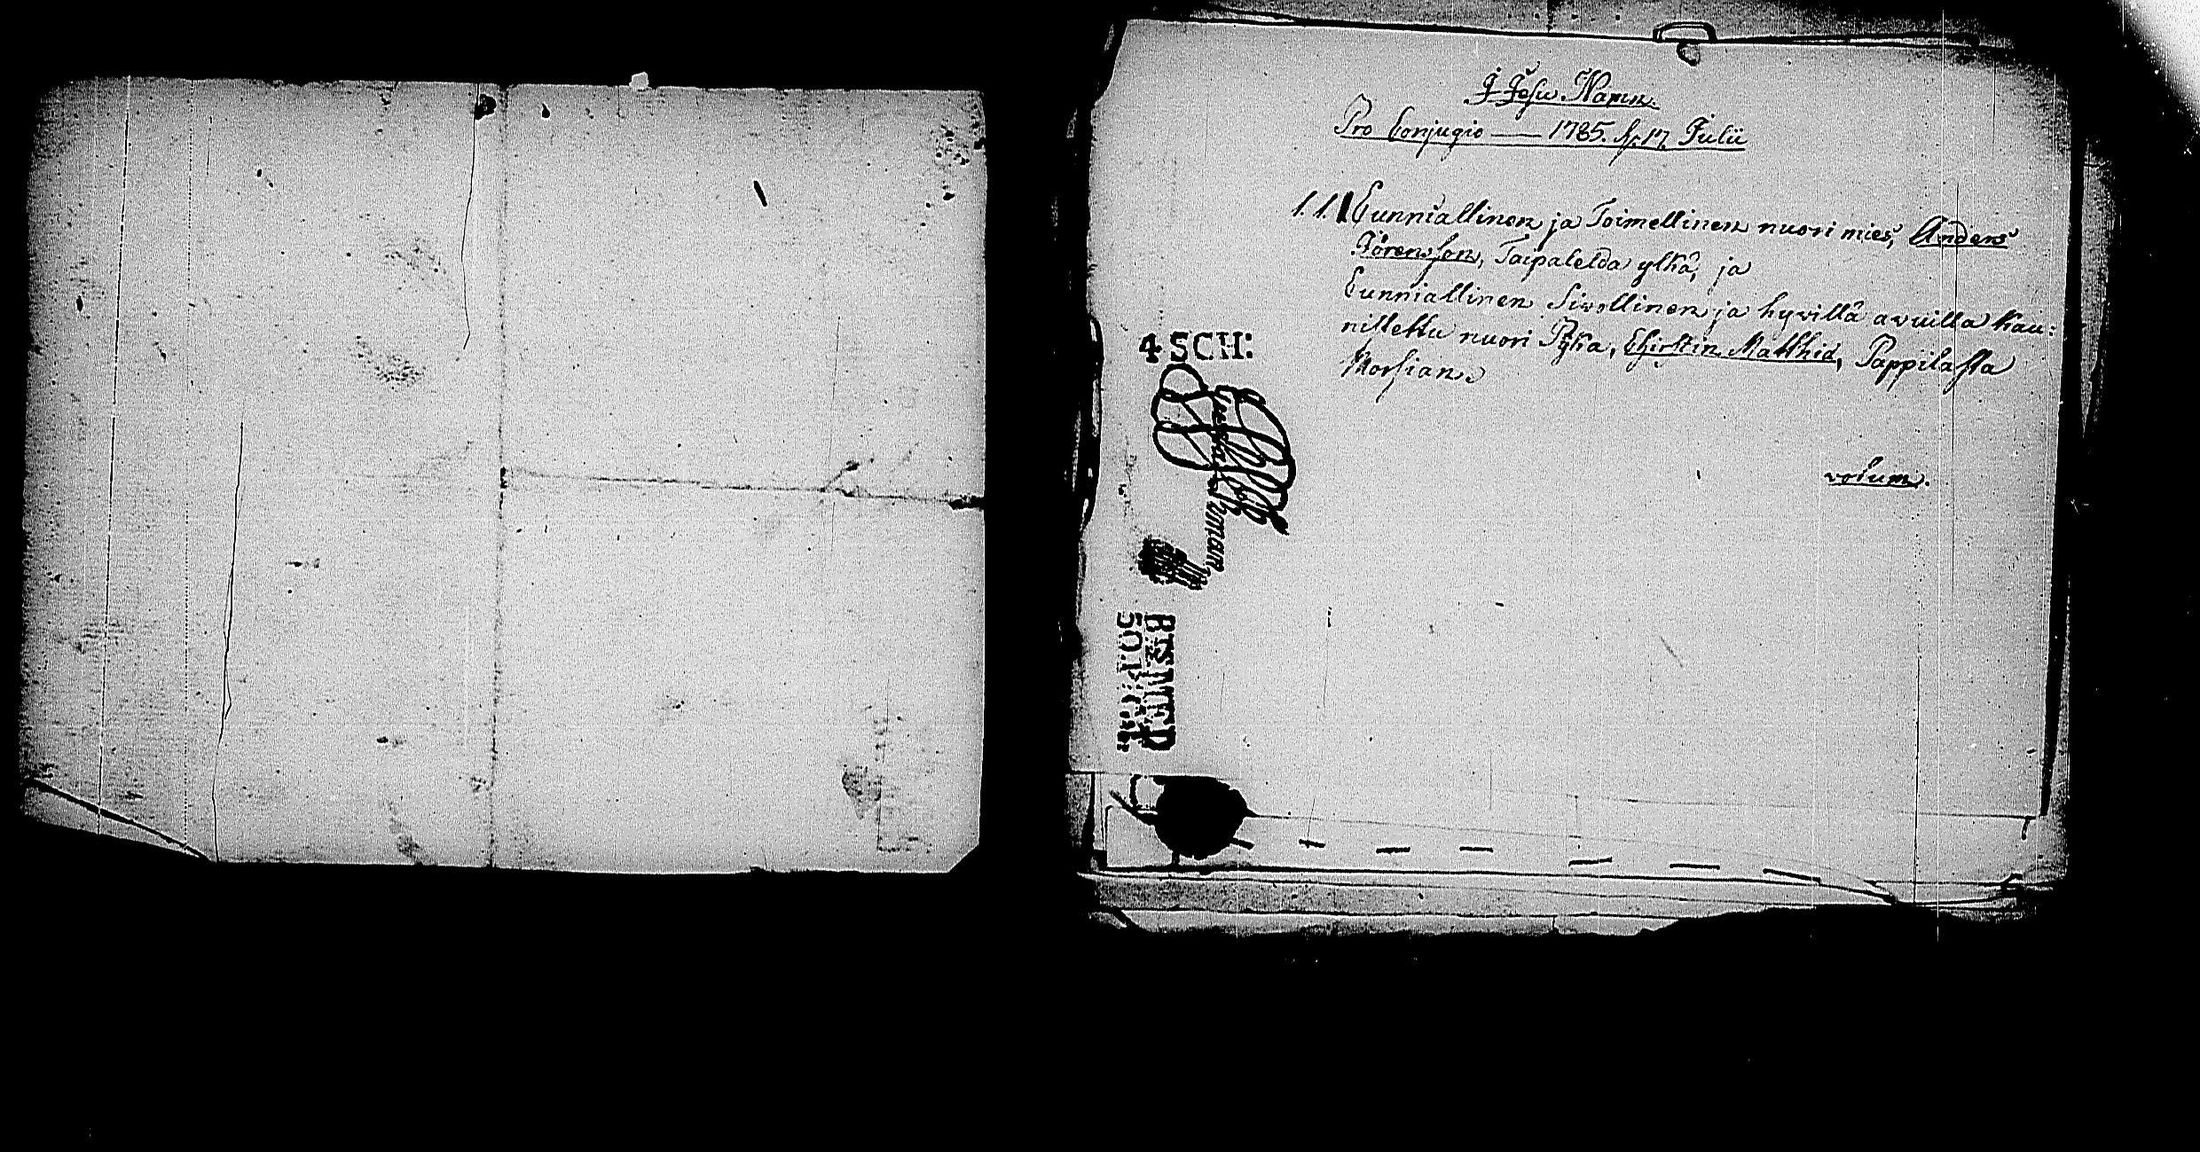 J Jesu Namn.
Pro Conjugio — 1785. d. 17 Julii
1.1. Cunniallinen ja Toimellinen nuori mies, Anders
Jörensson, Taipalelda ylkä, ja
Cunniallinen Siwollinen ja hywillä awuilla kau:
nistettu nuori Pijka, Chirstin Matthid, Pappilasta
Morsian.
votum.
4 SCH:
50